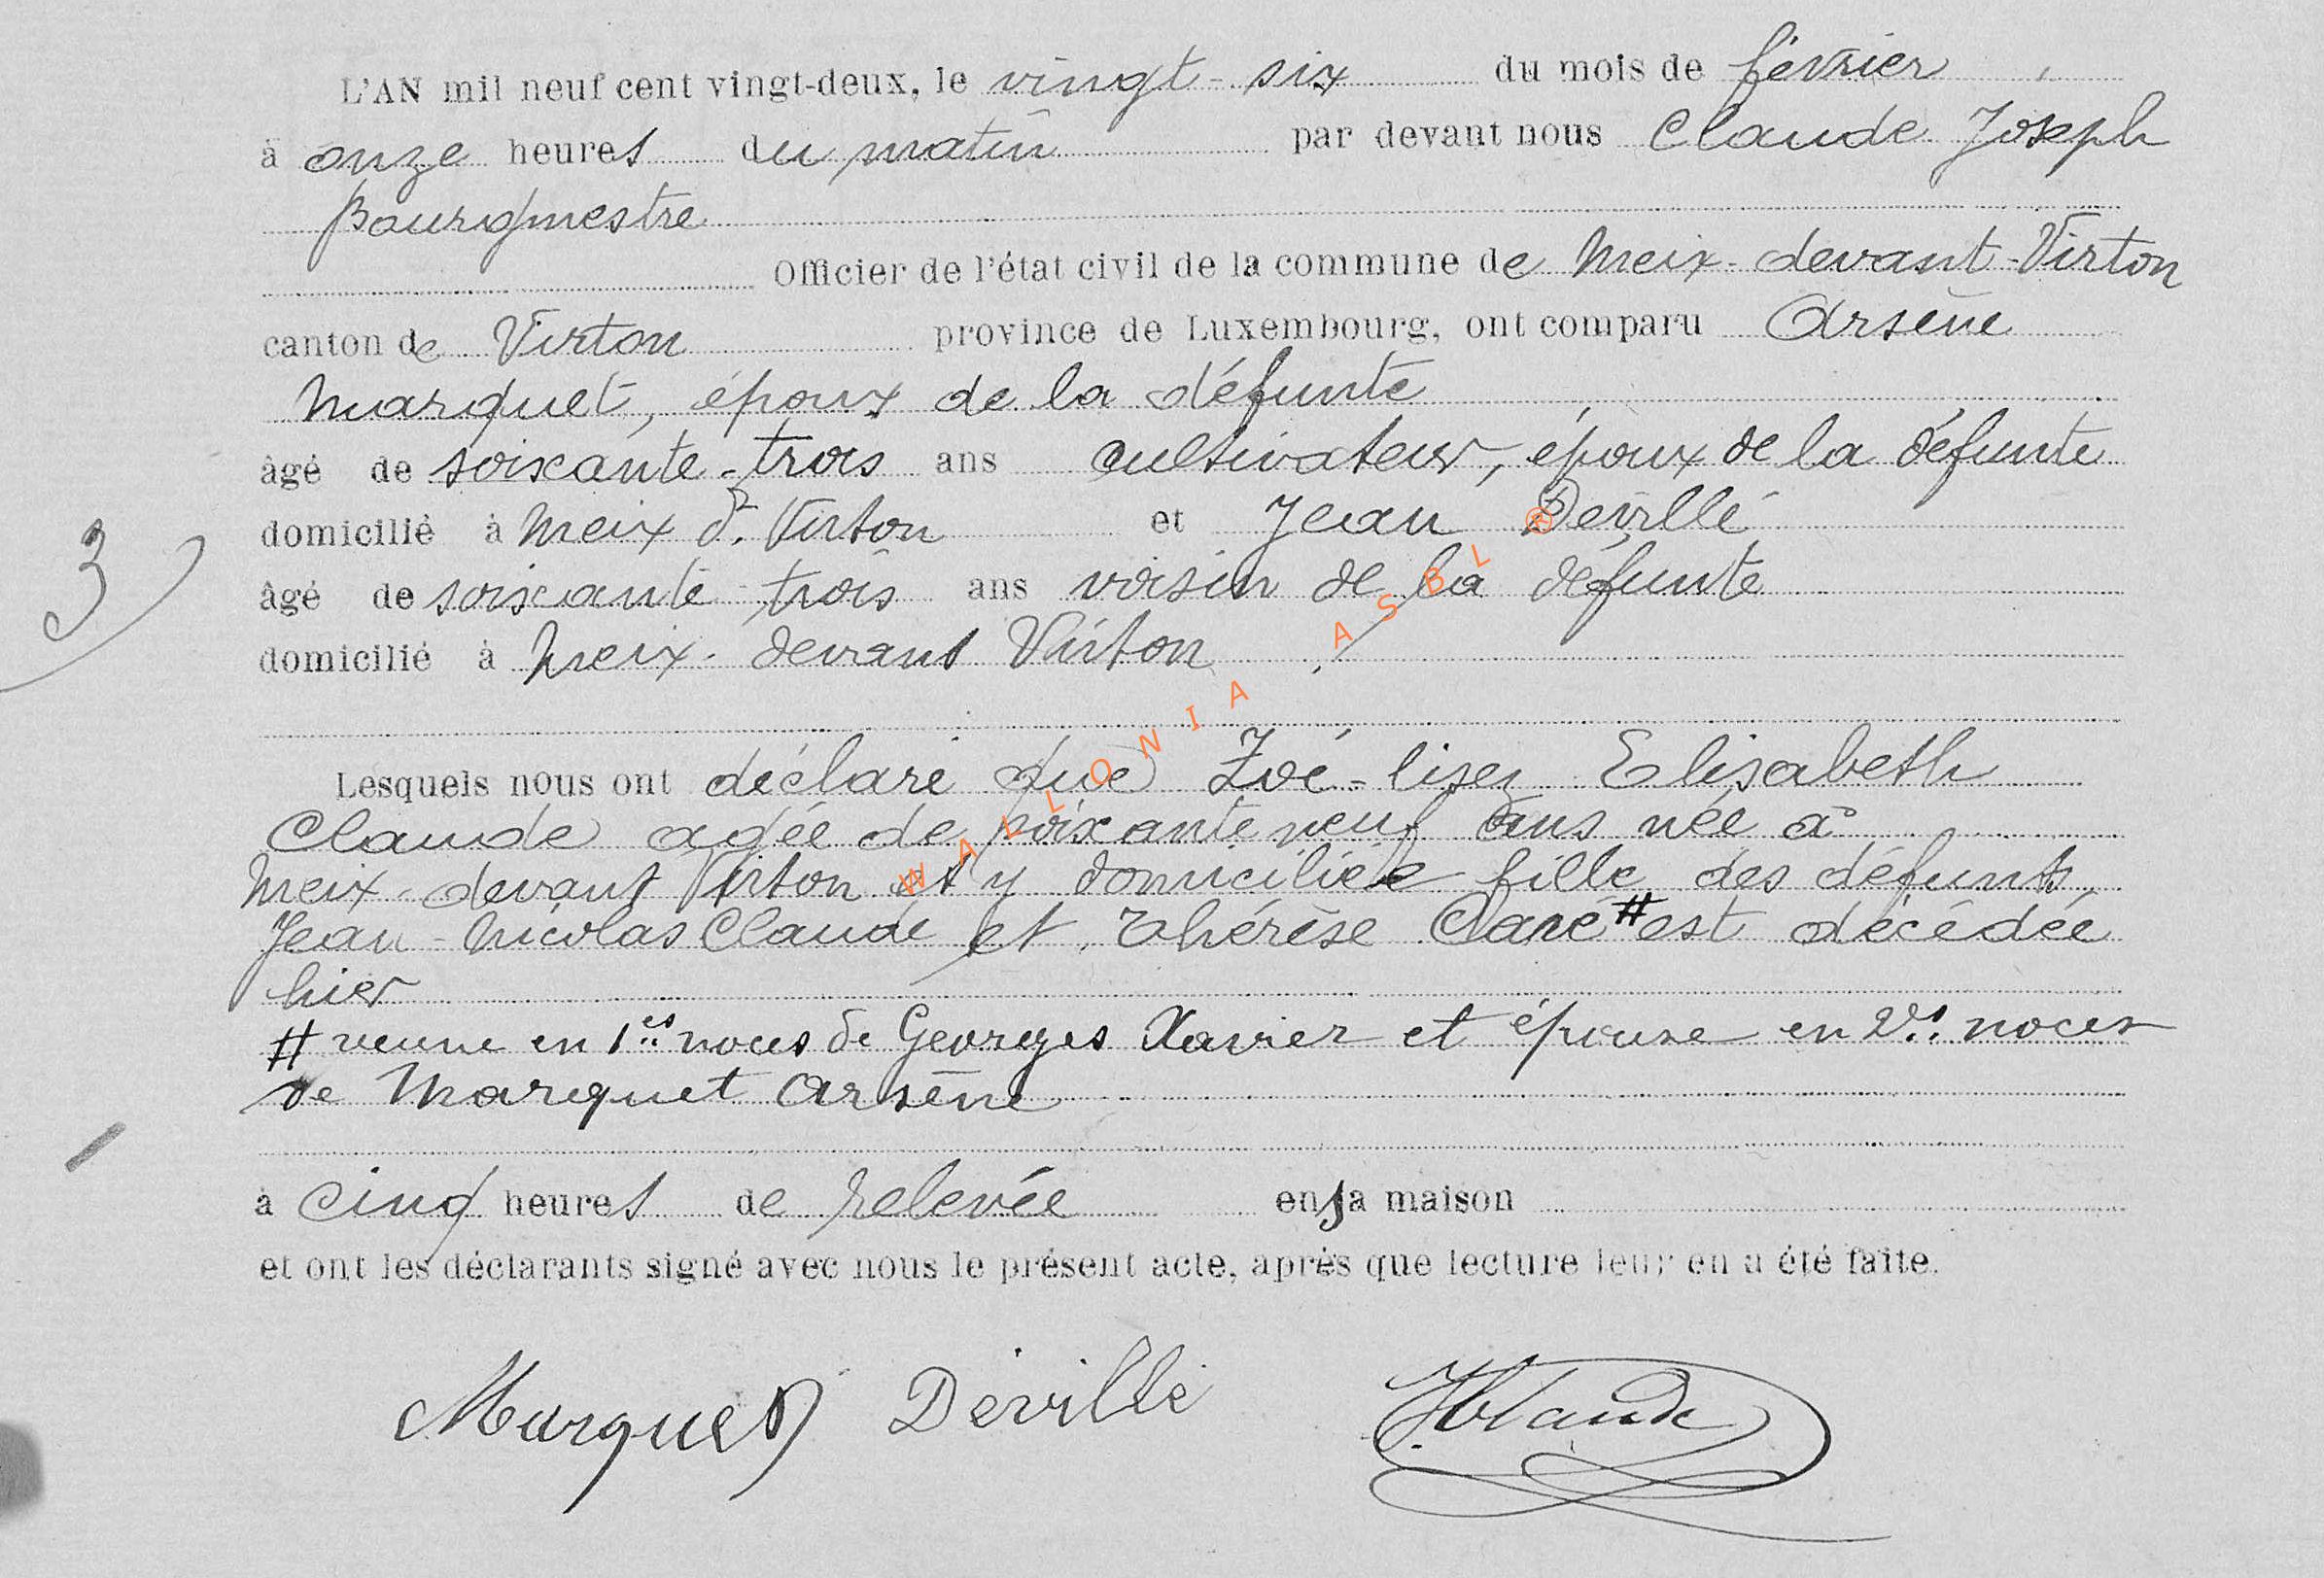 L'AN mil neuf cent vingt-deux, le vingt-six du mois de février
à onze heures du matin par devant nous Claude Joseph
Bourgmestre
Officier de l'état civil de la commune de Meix-devant-Virton
canton de Virton province de Luxembourg, ont comparu Arsène
Marquet, époux de la défunte
âgé de soixante-trois ans cultivateur, époux de la défunte
domicilié à Meix dt Virton et Jean Devillé
âgé de soixante-trois ans voisin de la défunte
domicilié à Meix-devant Virton.
3
Lesquels nous ont déclaré que Zoé-lisez Elisabeth
Claude agée de soixante neuf ans née à
Meix-devant Virton et y domiciliée fille des défunts
Jean-Nicolas Claude et Thérèse Claré # est décédée
hier
# veuve en 1es noces de Georges Xavier et épouse en 2es noces
de Marquet Arsène
à cinq heures de relevée en sa maison
et ont les déclarants signé avec nous le présent acte, après que lecture leur en a été faite.
Marquet Devillé JClaude
WALLONIA ASBL ®